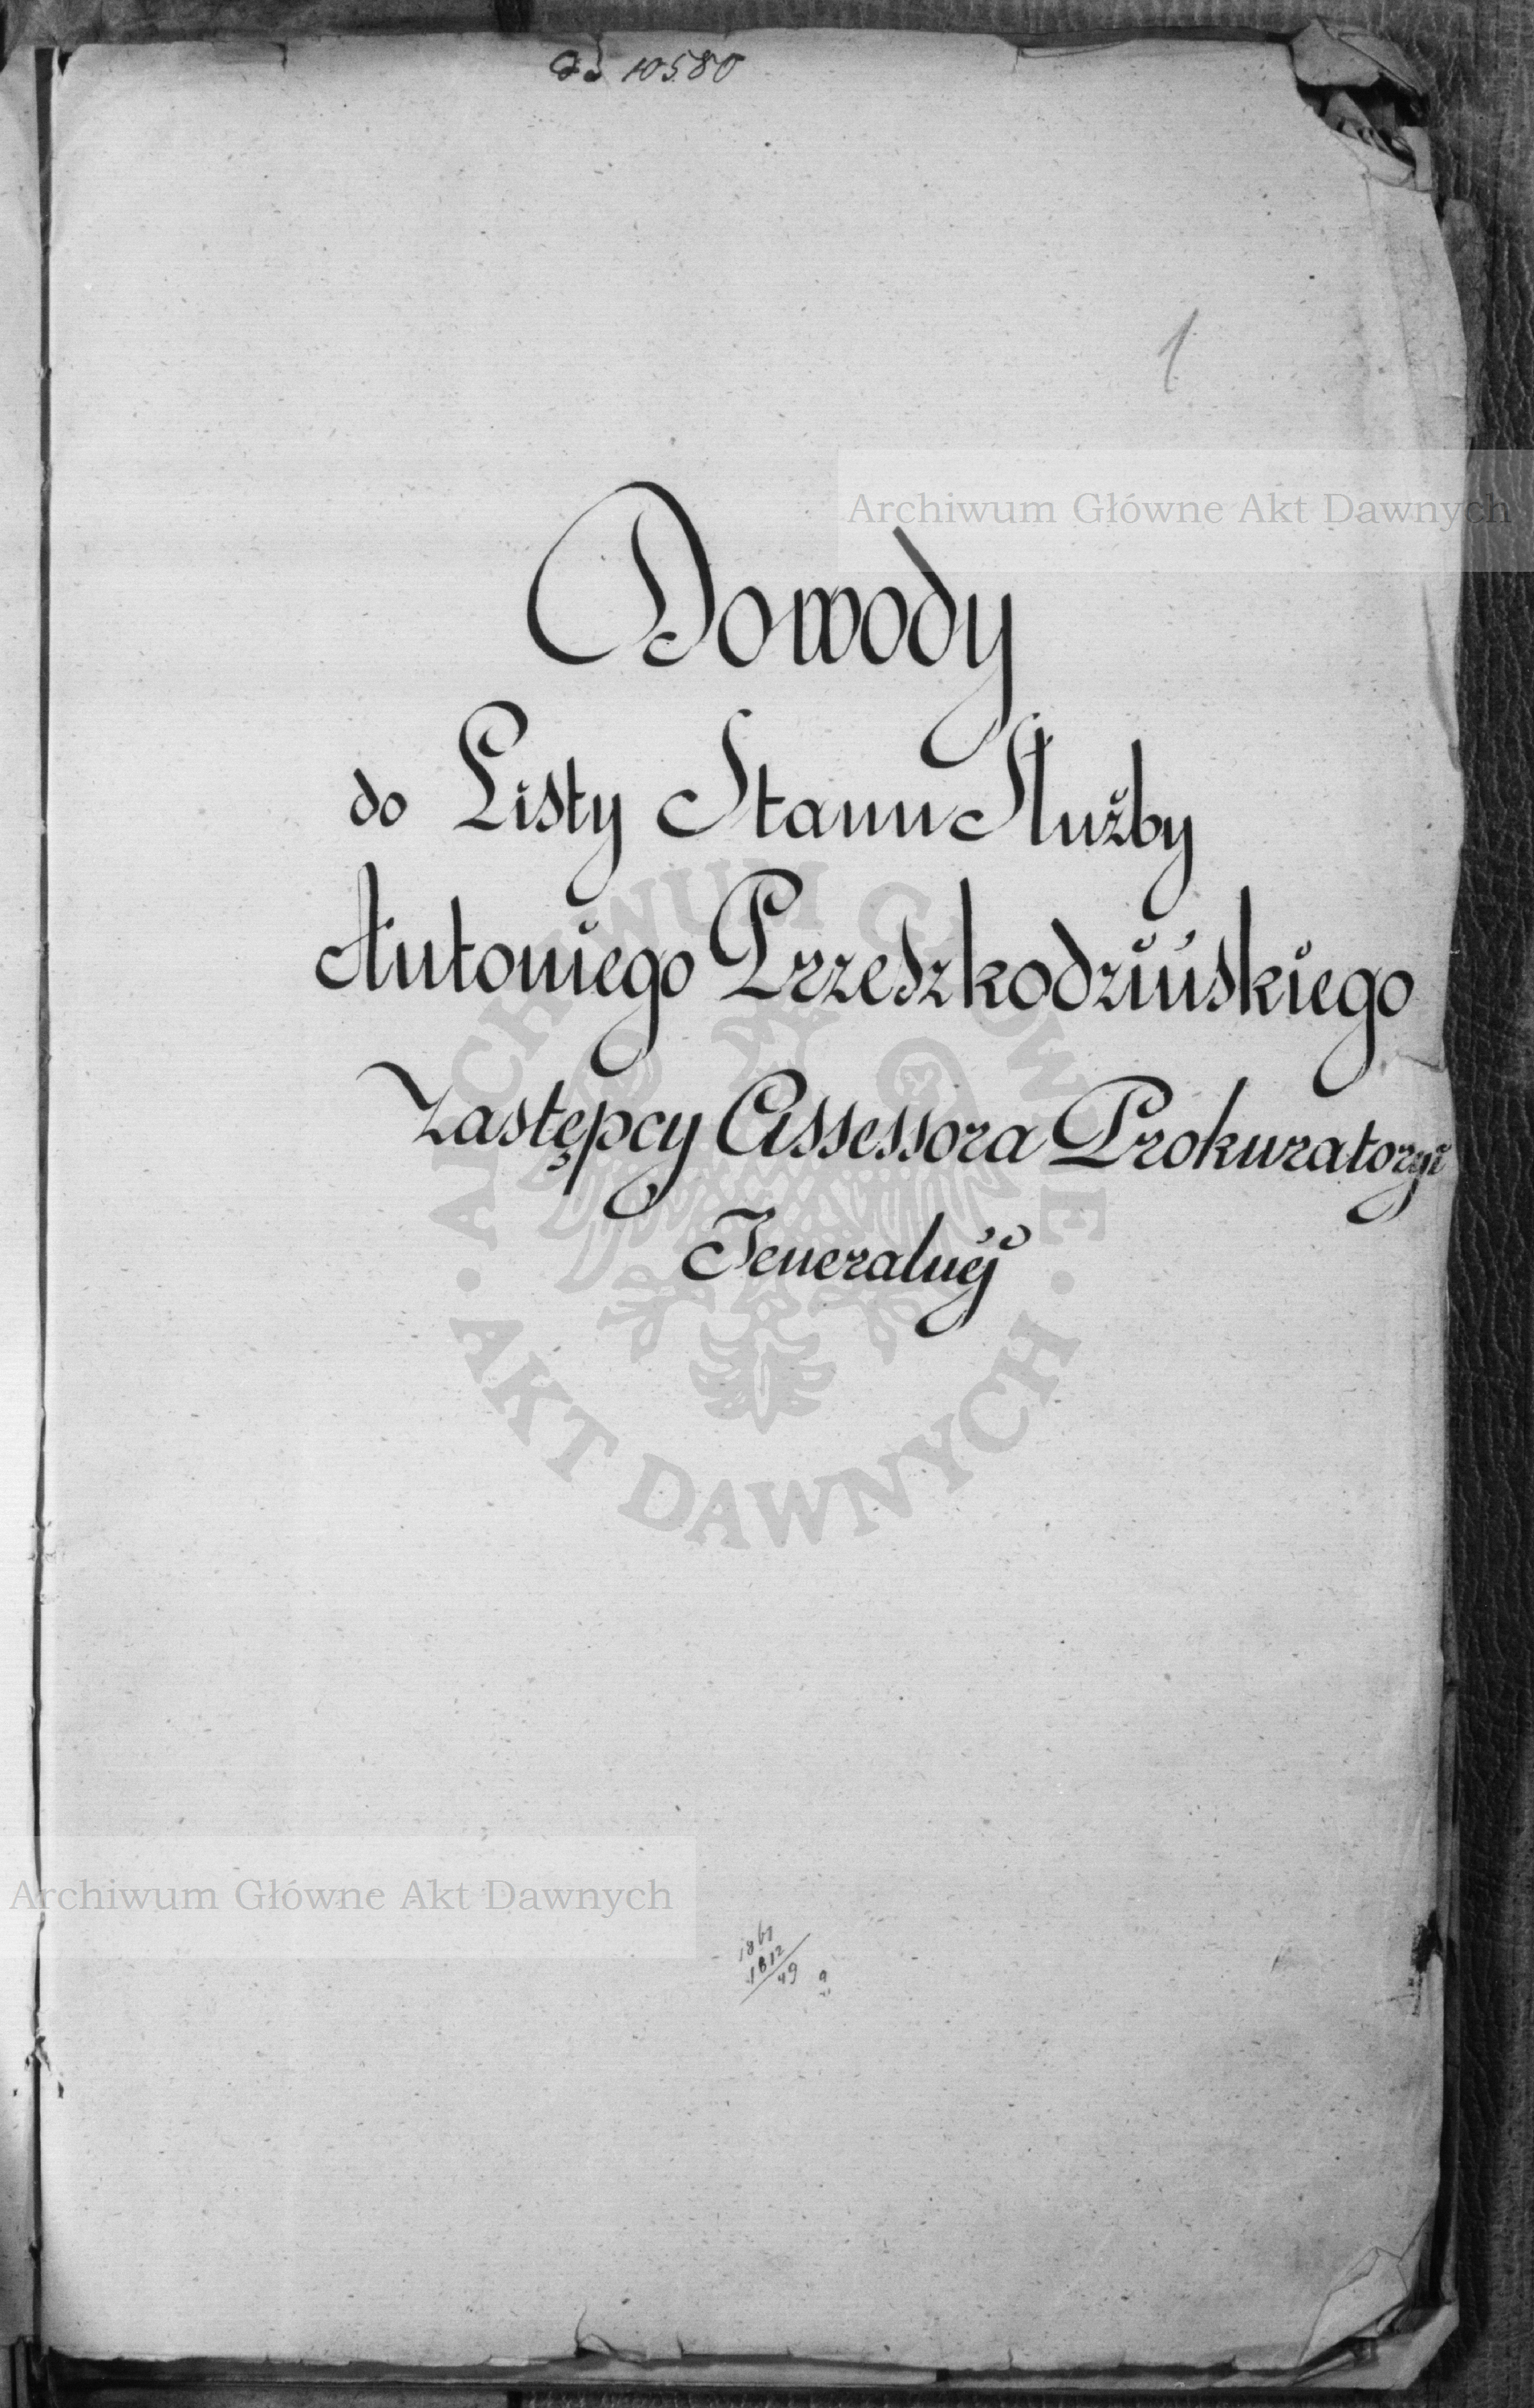 ad 10580
1
Archiwum Główne Akt Dawnych
Dowody
do Listy Stanu Służby
Antoniego Przeszkodzińskiego
Zastępcy Assessora Prokuratoryi
Jeneralnéj
ARCHIWUM GŁÓWNE
AKT DAWNYCH
Archiwum Główne Akt Dawnych
1861
1812
49